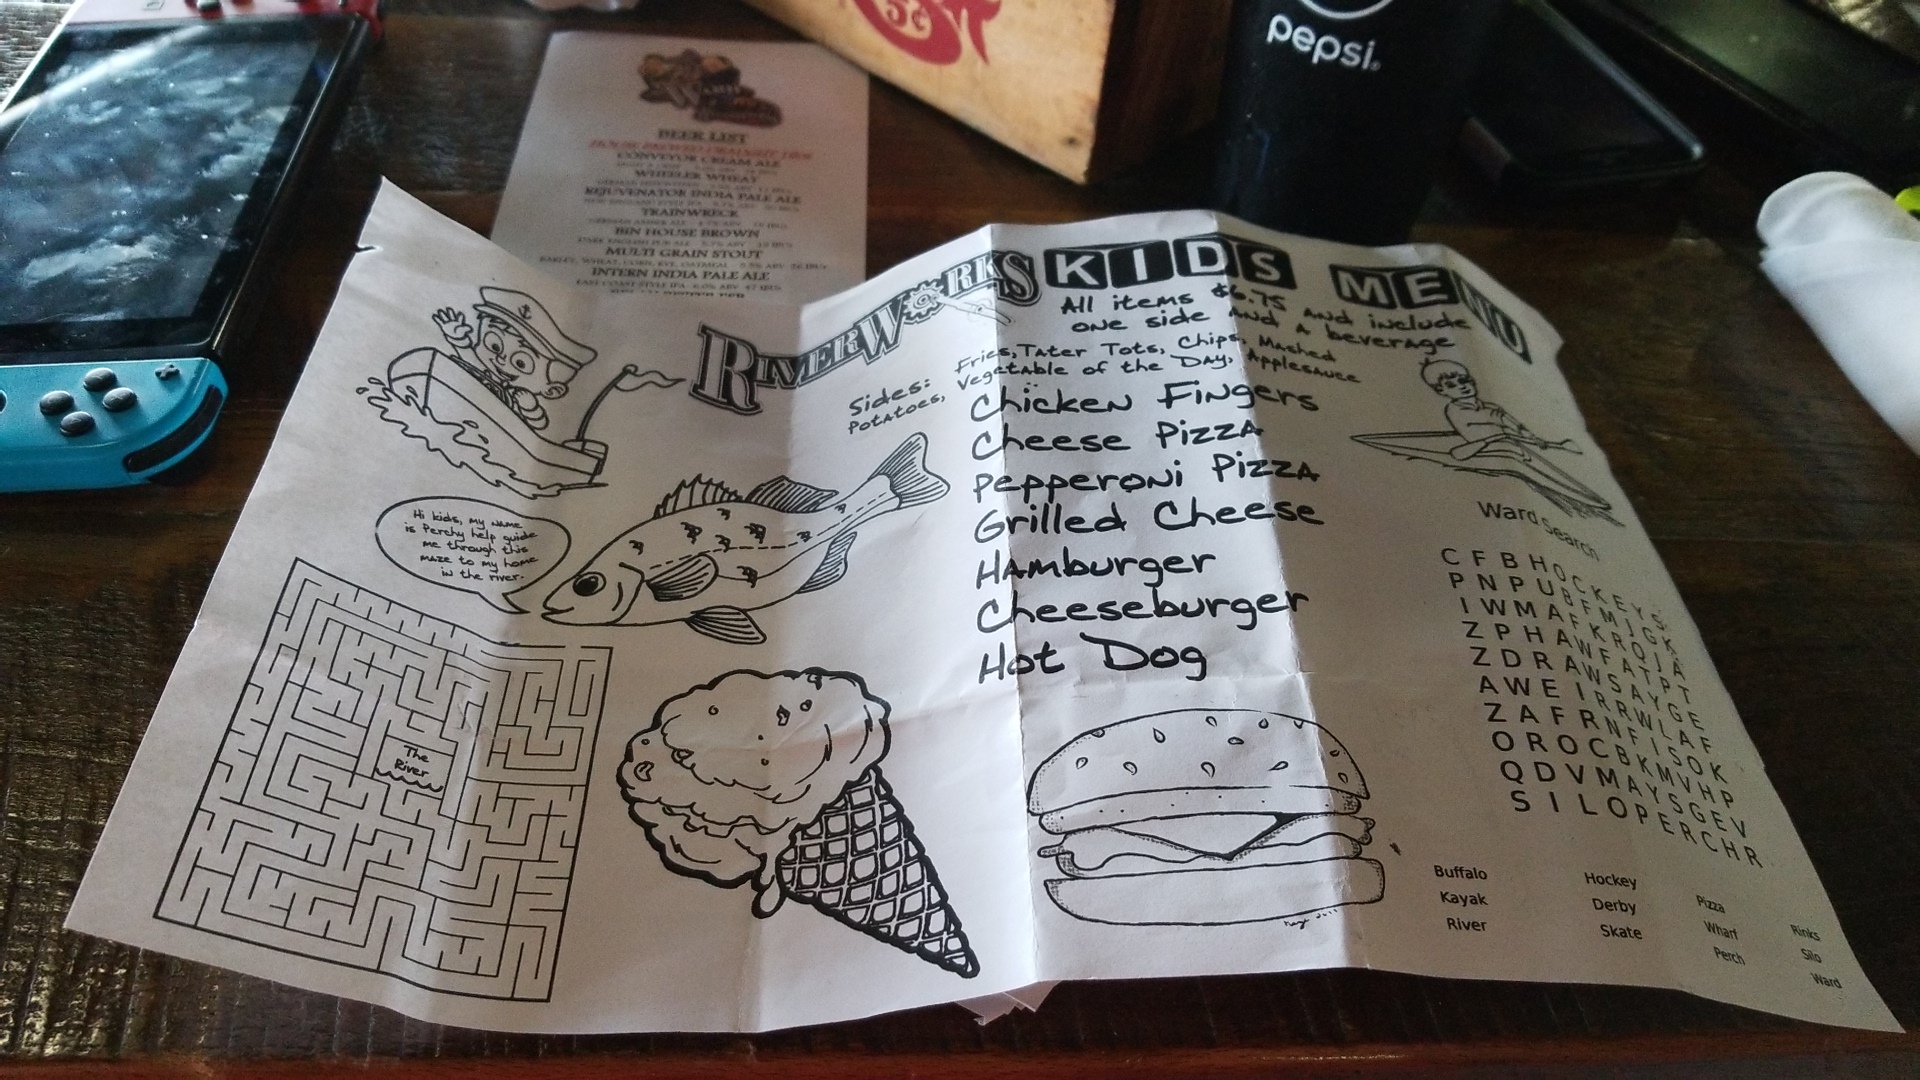 5¢
pepsi.
BEER LIST
HOUSE BREWED DRAUGHT
CONVEYOR CREAM ALE
WHEELER WHEAT
REJUVENATOR INDIA PALE ALE
TRAINWRECK
BIN HOUSE BROWN
MULTI GRAIN STOUT
INTERN INDIA PALE ALE
RIVERWORKS KIDS MENU
All items $6.75 and include
one side and a beverage
Sides: Fries, Tater Tots, Chips, Mashed
Potatoes, Vegetable of the Day, Applesauce
Chicken Fingers
Cheese Pizza
Pepperoni Pizza
Grilled Cheese
Hamburger
Cheeseburger
Hot Dog
Hi kids, my name
is Perchy help guide
me through this
maze to my home
in the river.
The
River
Ward Search
C F B H O C K E Y S
P N P U B F M J G K
I W M A F K R Q I A
Z P H A W F A T P T
Z D R A W S A Y G E
A W E I R R W L A F
Z A F R N F I S O K
O R O C B K M V H P
Q D V M A Y S G E V
S I L O P E R C H R
Buffalo Hockey Pizza Rinks
Kayak Derby Wharf Silo
River Skate Perch Ward